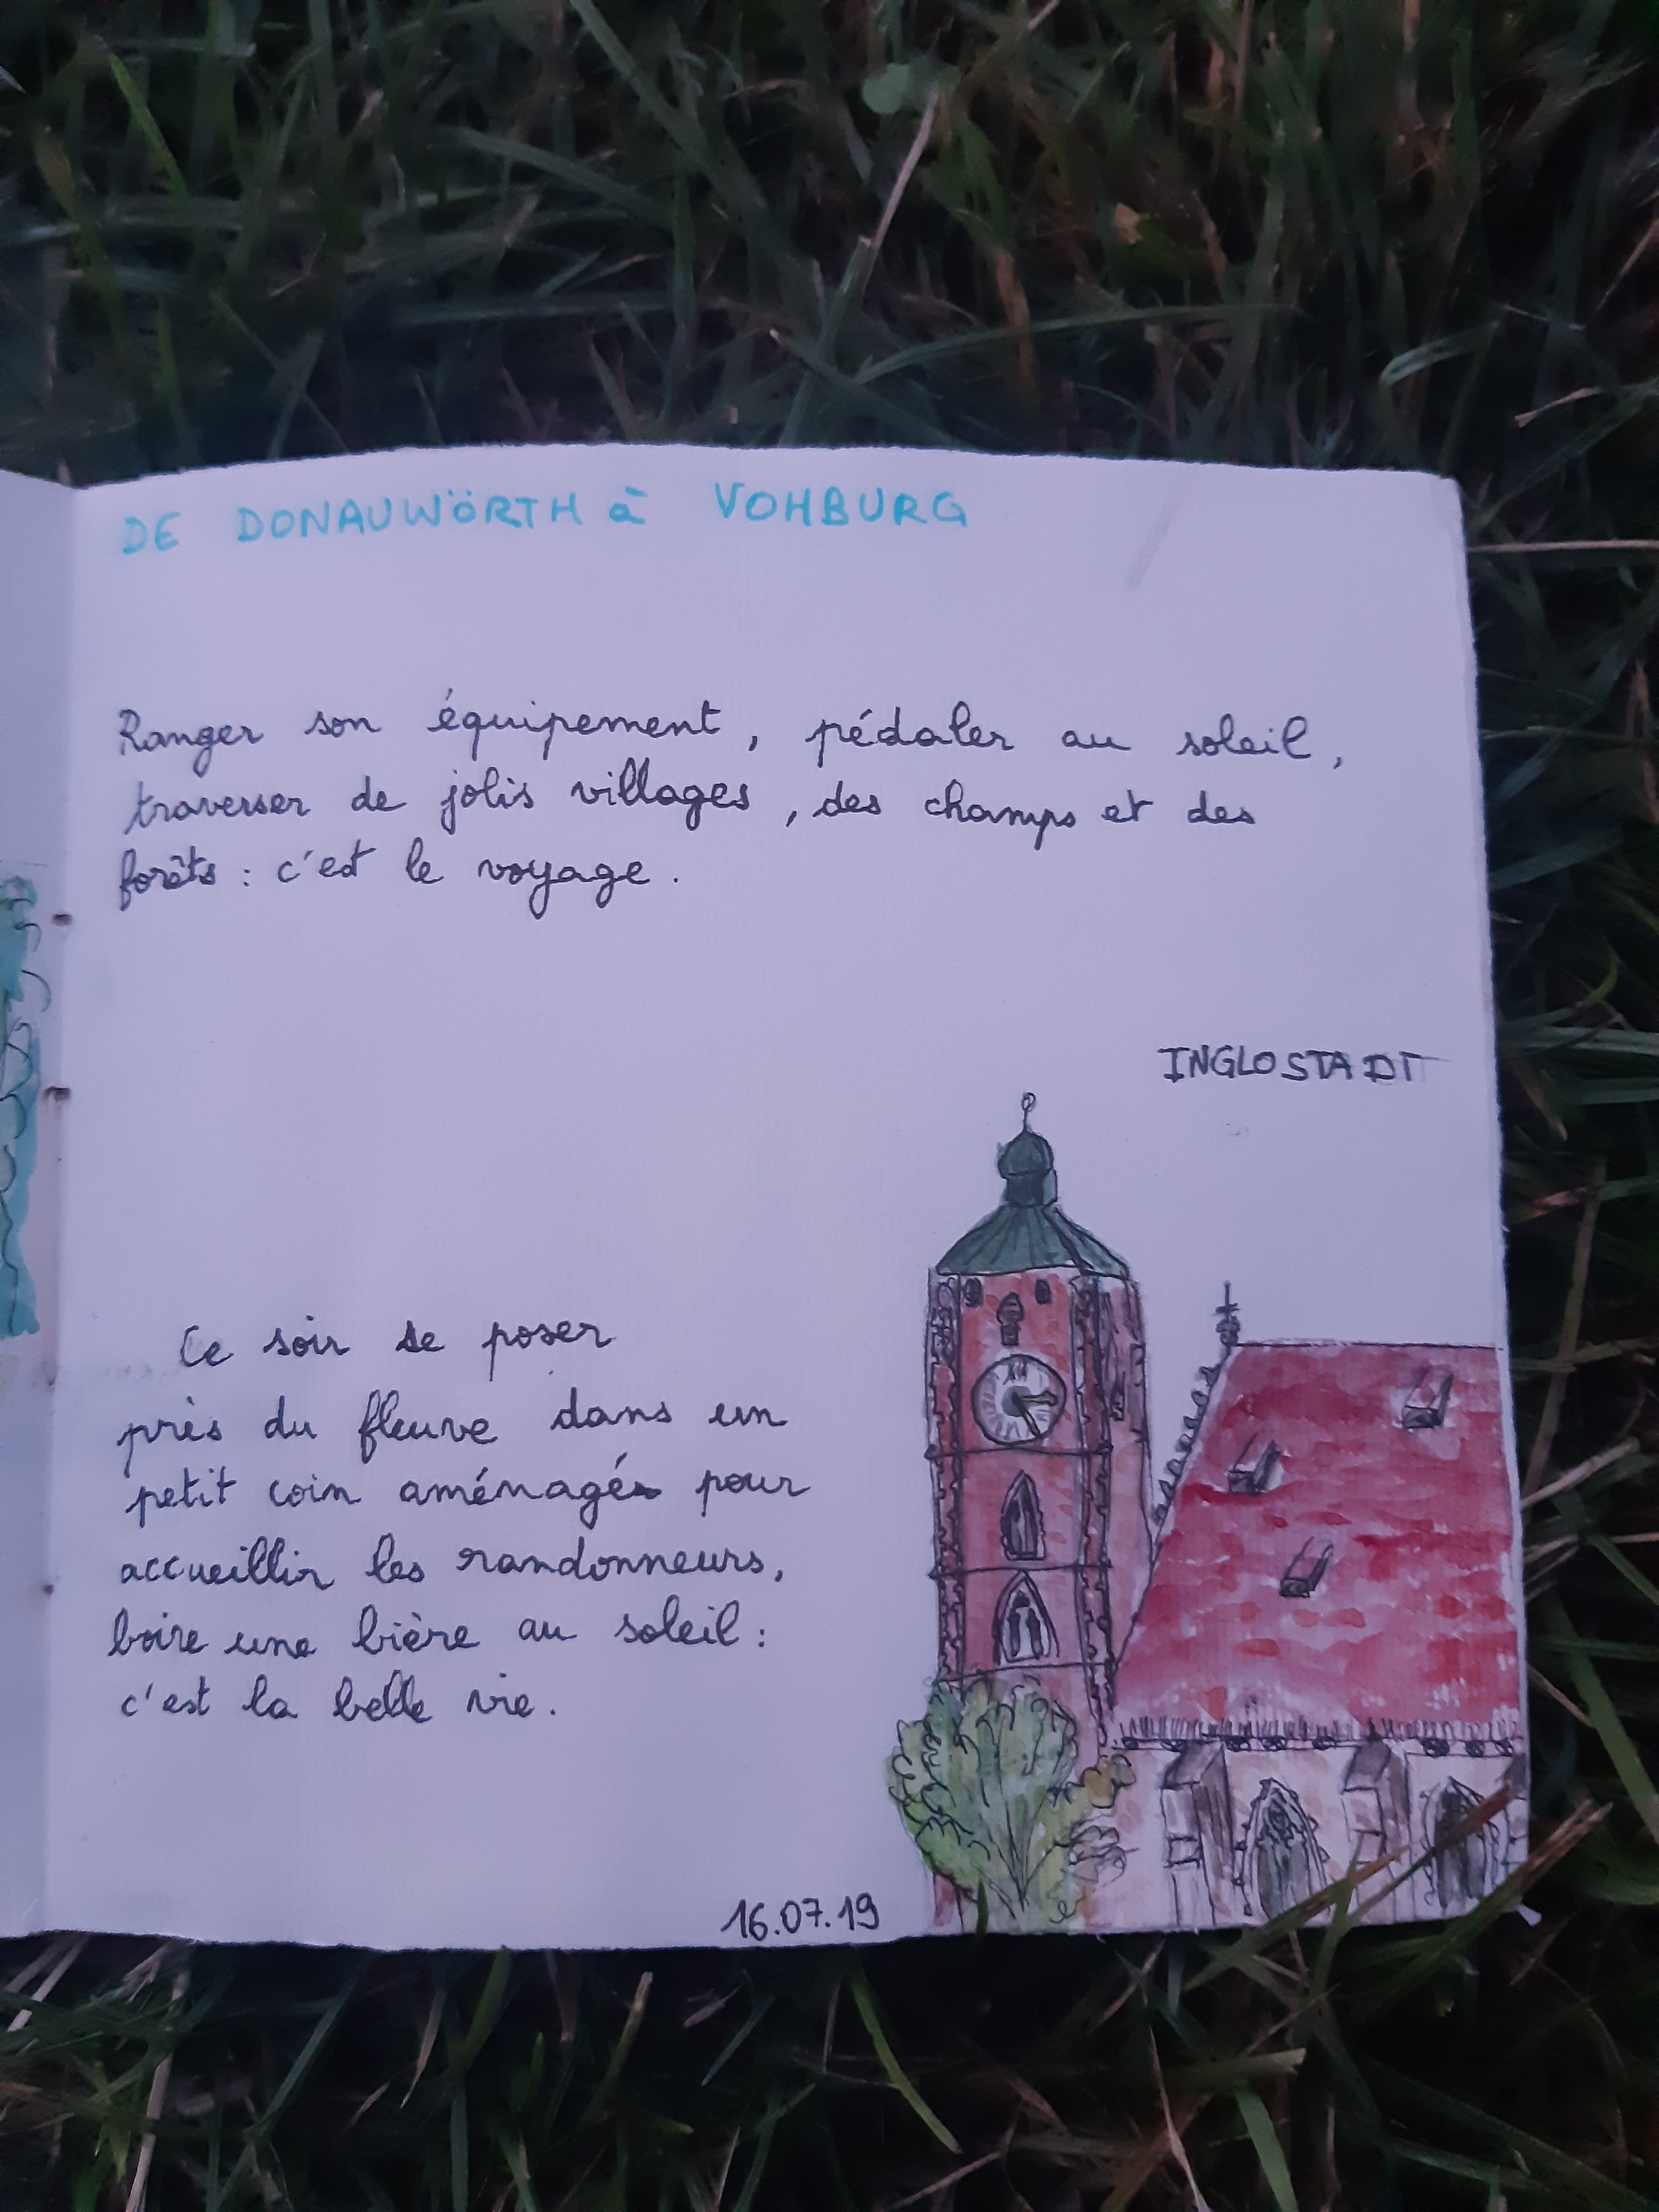 DE DONAUWÖRTH à VOHBURG
Ranger son équipement, pédaler au soleil,
traverser de jolis villages, des champs et des
forêts : c'est le voyage.
INGLOSTADT
Ce soir se poser
près du fleuve dans un
petit coin aménagé pour
accueillir les randonneurs,
boire une bière au soleil :
c'est la belle vie.
16.07.19